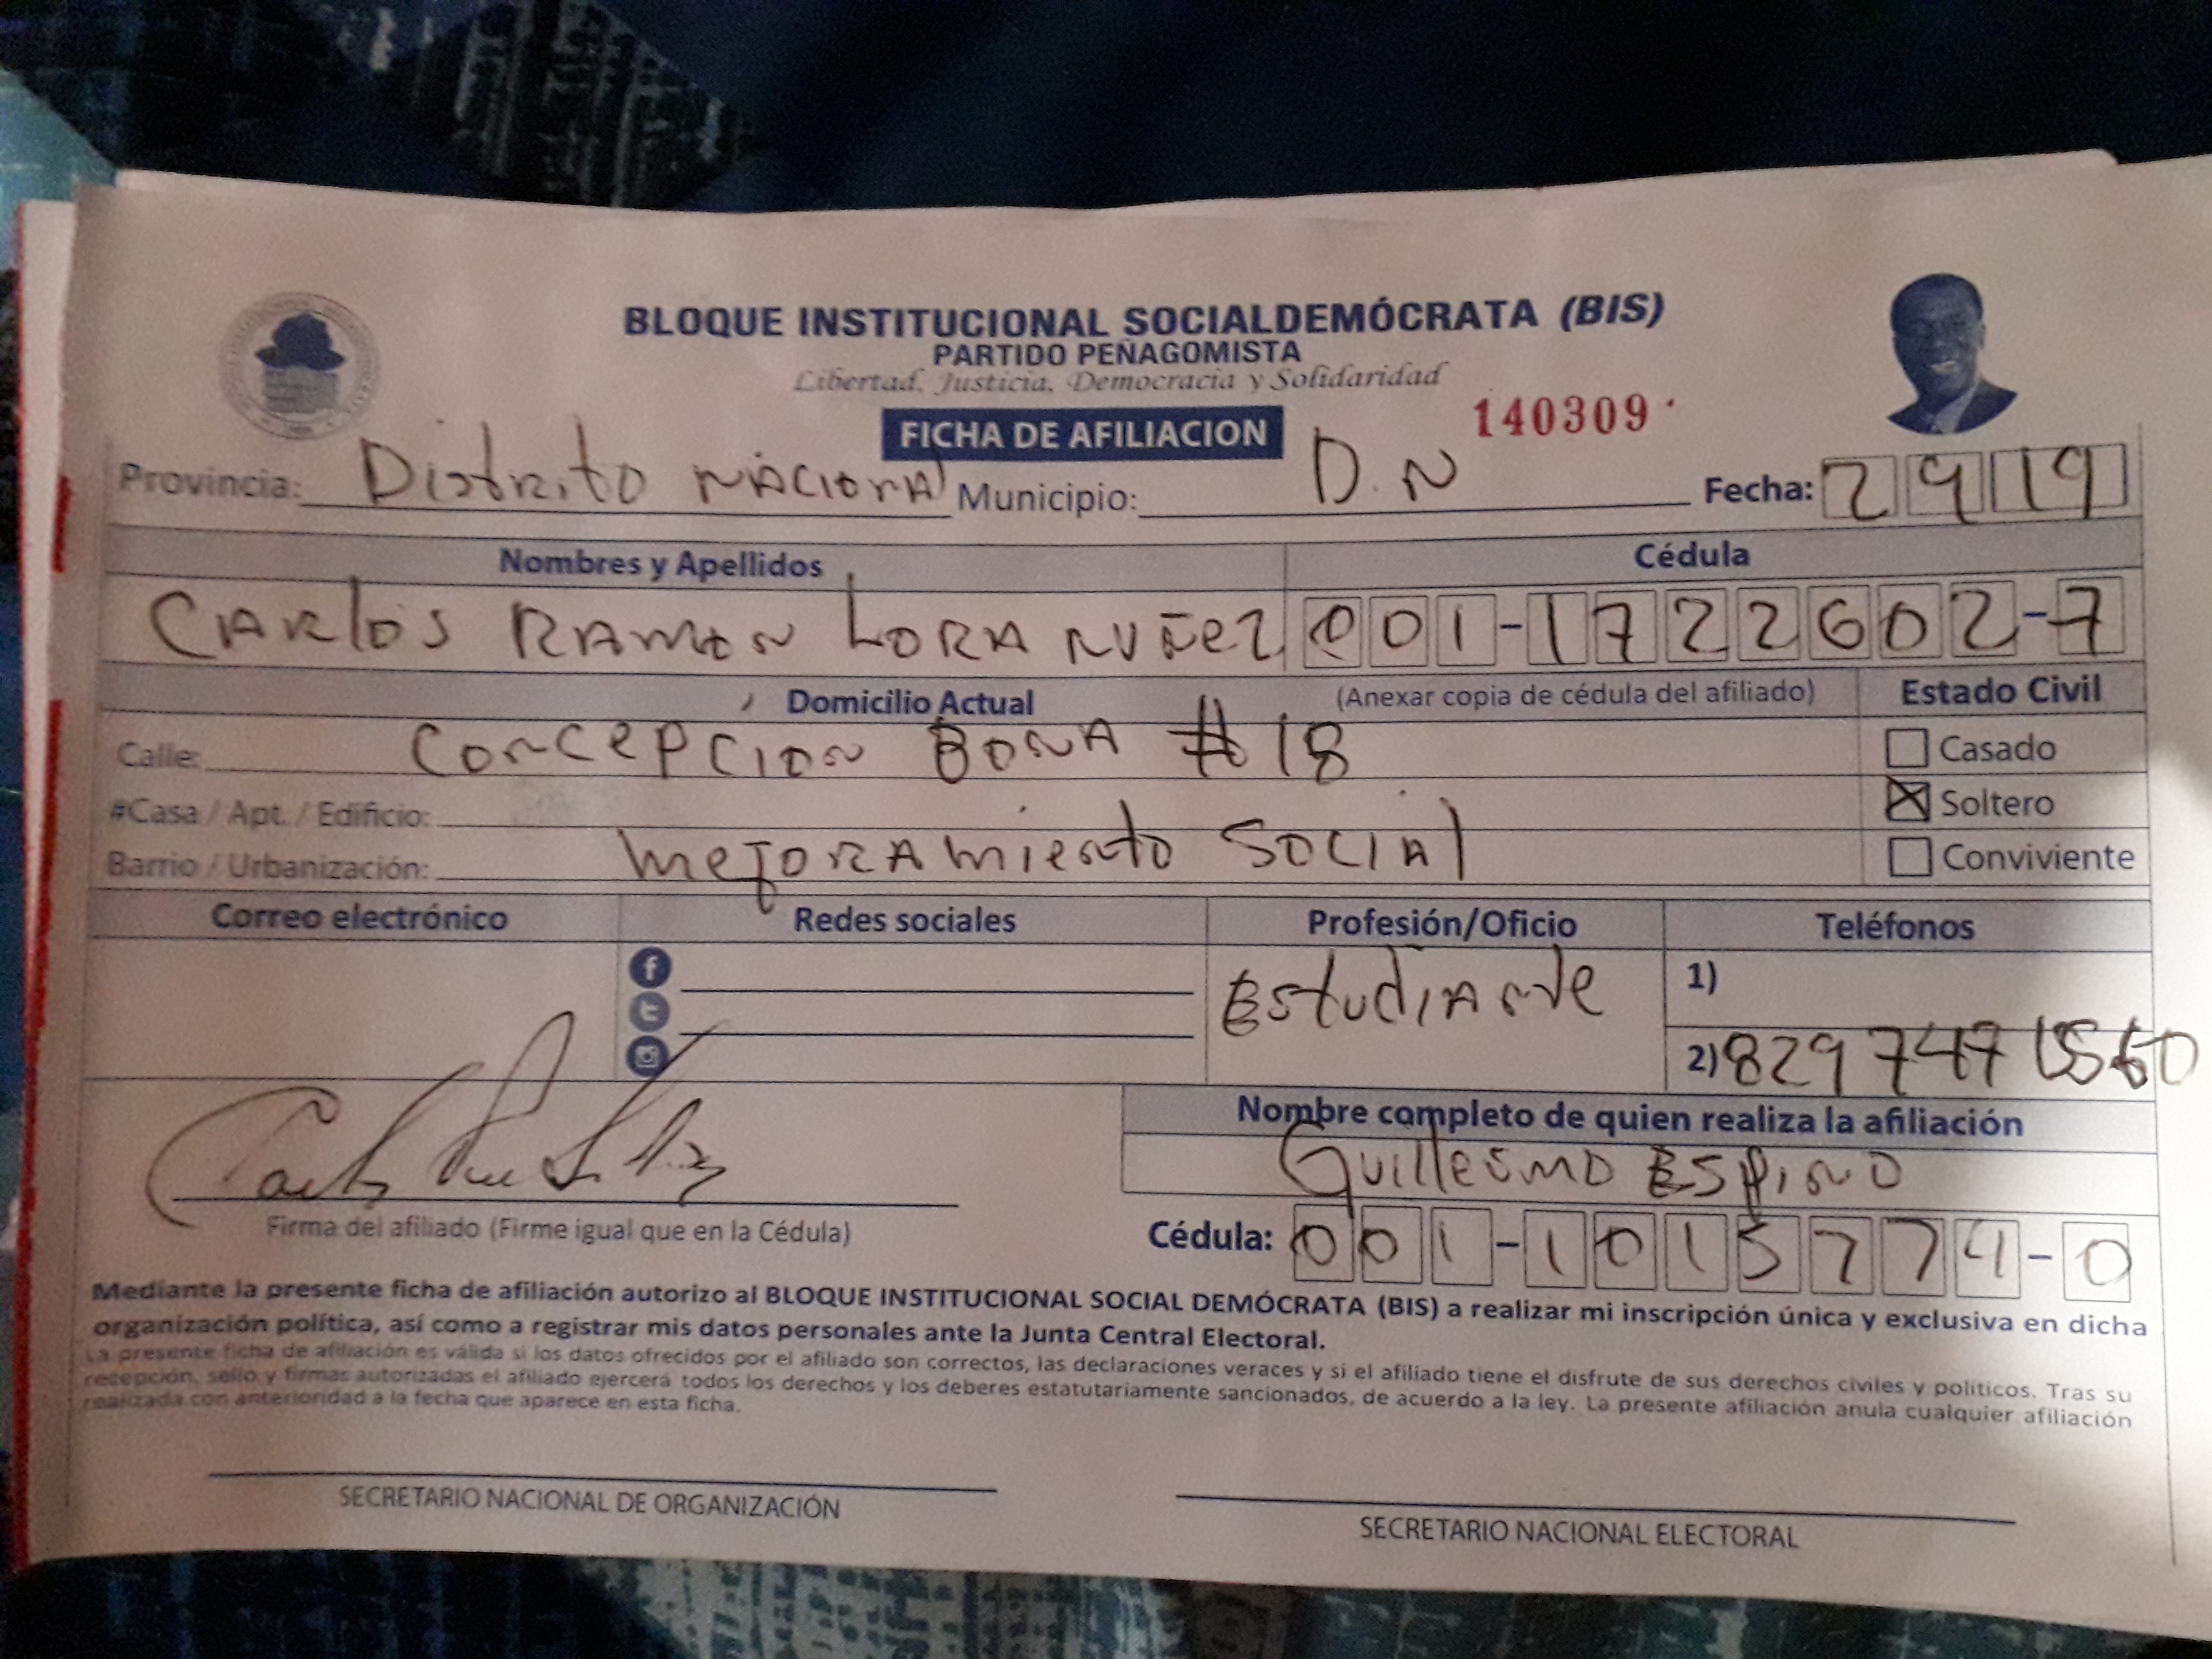 BLOQUE INSTITUCIONAL SOCIALDEMÓCRATA (BIS)
PARTIDO PEÑAGOMISTA
Libertad, Justicia, Democracia y Solidaridad
FICHA DE AFILIACION 140309
Provincia: Distrito Nacional Municipio: D.N Fecha: 2 9 19
Nombres y Apellidos Cédula
Carlos Ramon Lora Nuñez 001-1722602-7
Domicilio Actual (Anexar copia de cédula del afiliado) Estado Civil
Calle: Concepción Bona #18 Casado
#Casa / Apt. / Edificio: Soltero
Barrio / Urbanización: Mejoramiento Social Conviviente
Correo electrónico Redes sociales Profesión/Oficio Teléfonos
Estudiante 1)
2) 829 747
Nombre completo de quien realiza la afiliación
Guillermo Espino
Firma del afiliado (Firme igual que en la Cédula) Cédula: 001-1015774-0
Mediante la presente ficha de afiliación autorizo al BLOQUE INSTITUCIONAL SOCIAL DEMÓCRATA (BIS) a realizar mi inscripción única y exclusiva en dicha
organización política, así como a registrar mis datos personales ante la Junta Central Electoral.
La presente ficha de afiliación es válida si los datos ofrecidos por el afiliado son correctos, las declaraciones veraces y si el afiliado tiene el disfrute de sus derechos civiles y políticos. Tras su
recepción, sello y firmas autorizadas el afiliado ejercerá todos los derechos y los deberes estatutariamente sancionados, de acuerdo a la ley. La presente afiliación anula cualquier afiliación
realizada con anterioridad a la fecha que aparece en esta ficha.
SECRETARIO NACIONAL DE ORGANIZACIÓN
SECRETARIO NACIONAL ELECTORAL